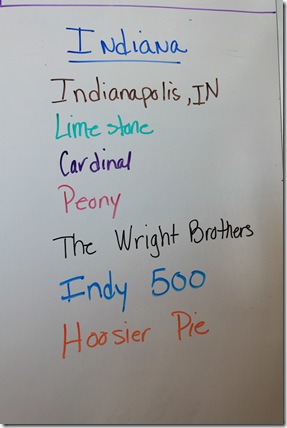 Indiana
Indianapolis, IN
Limestone
Cardinal
Peony
The Wright Brothers
Indy 500
Hoosier Pie